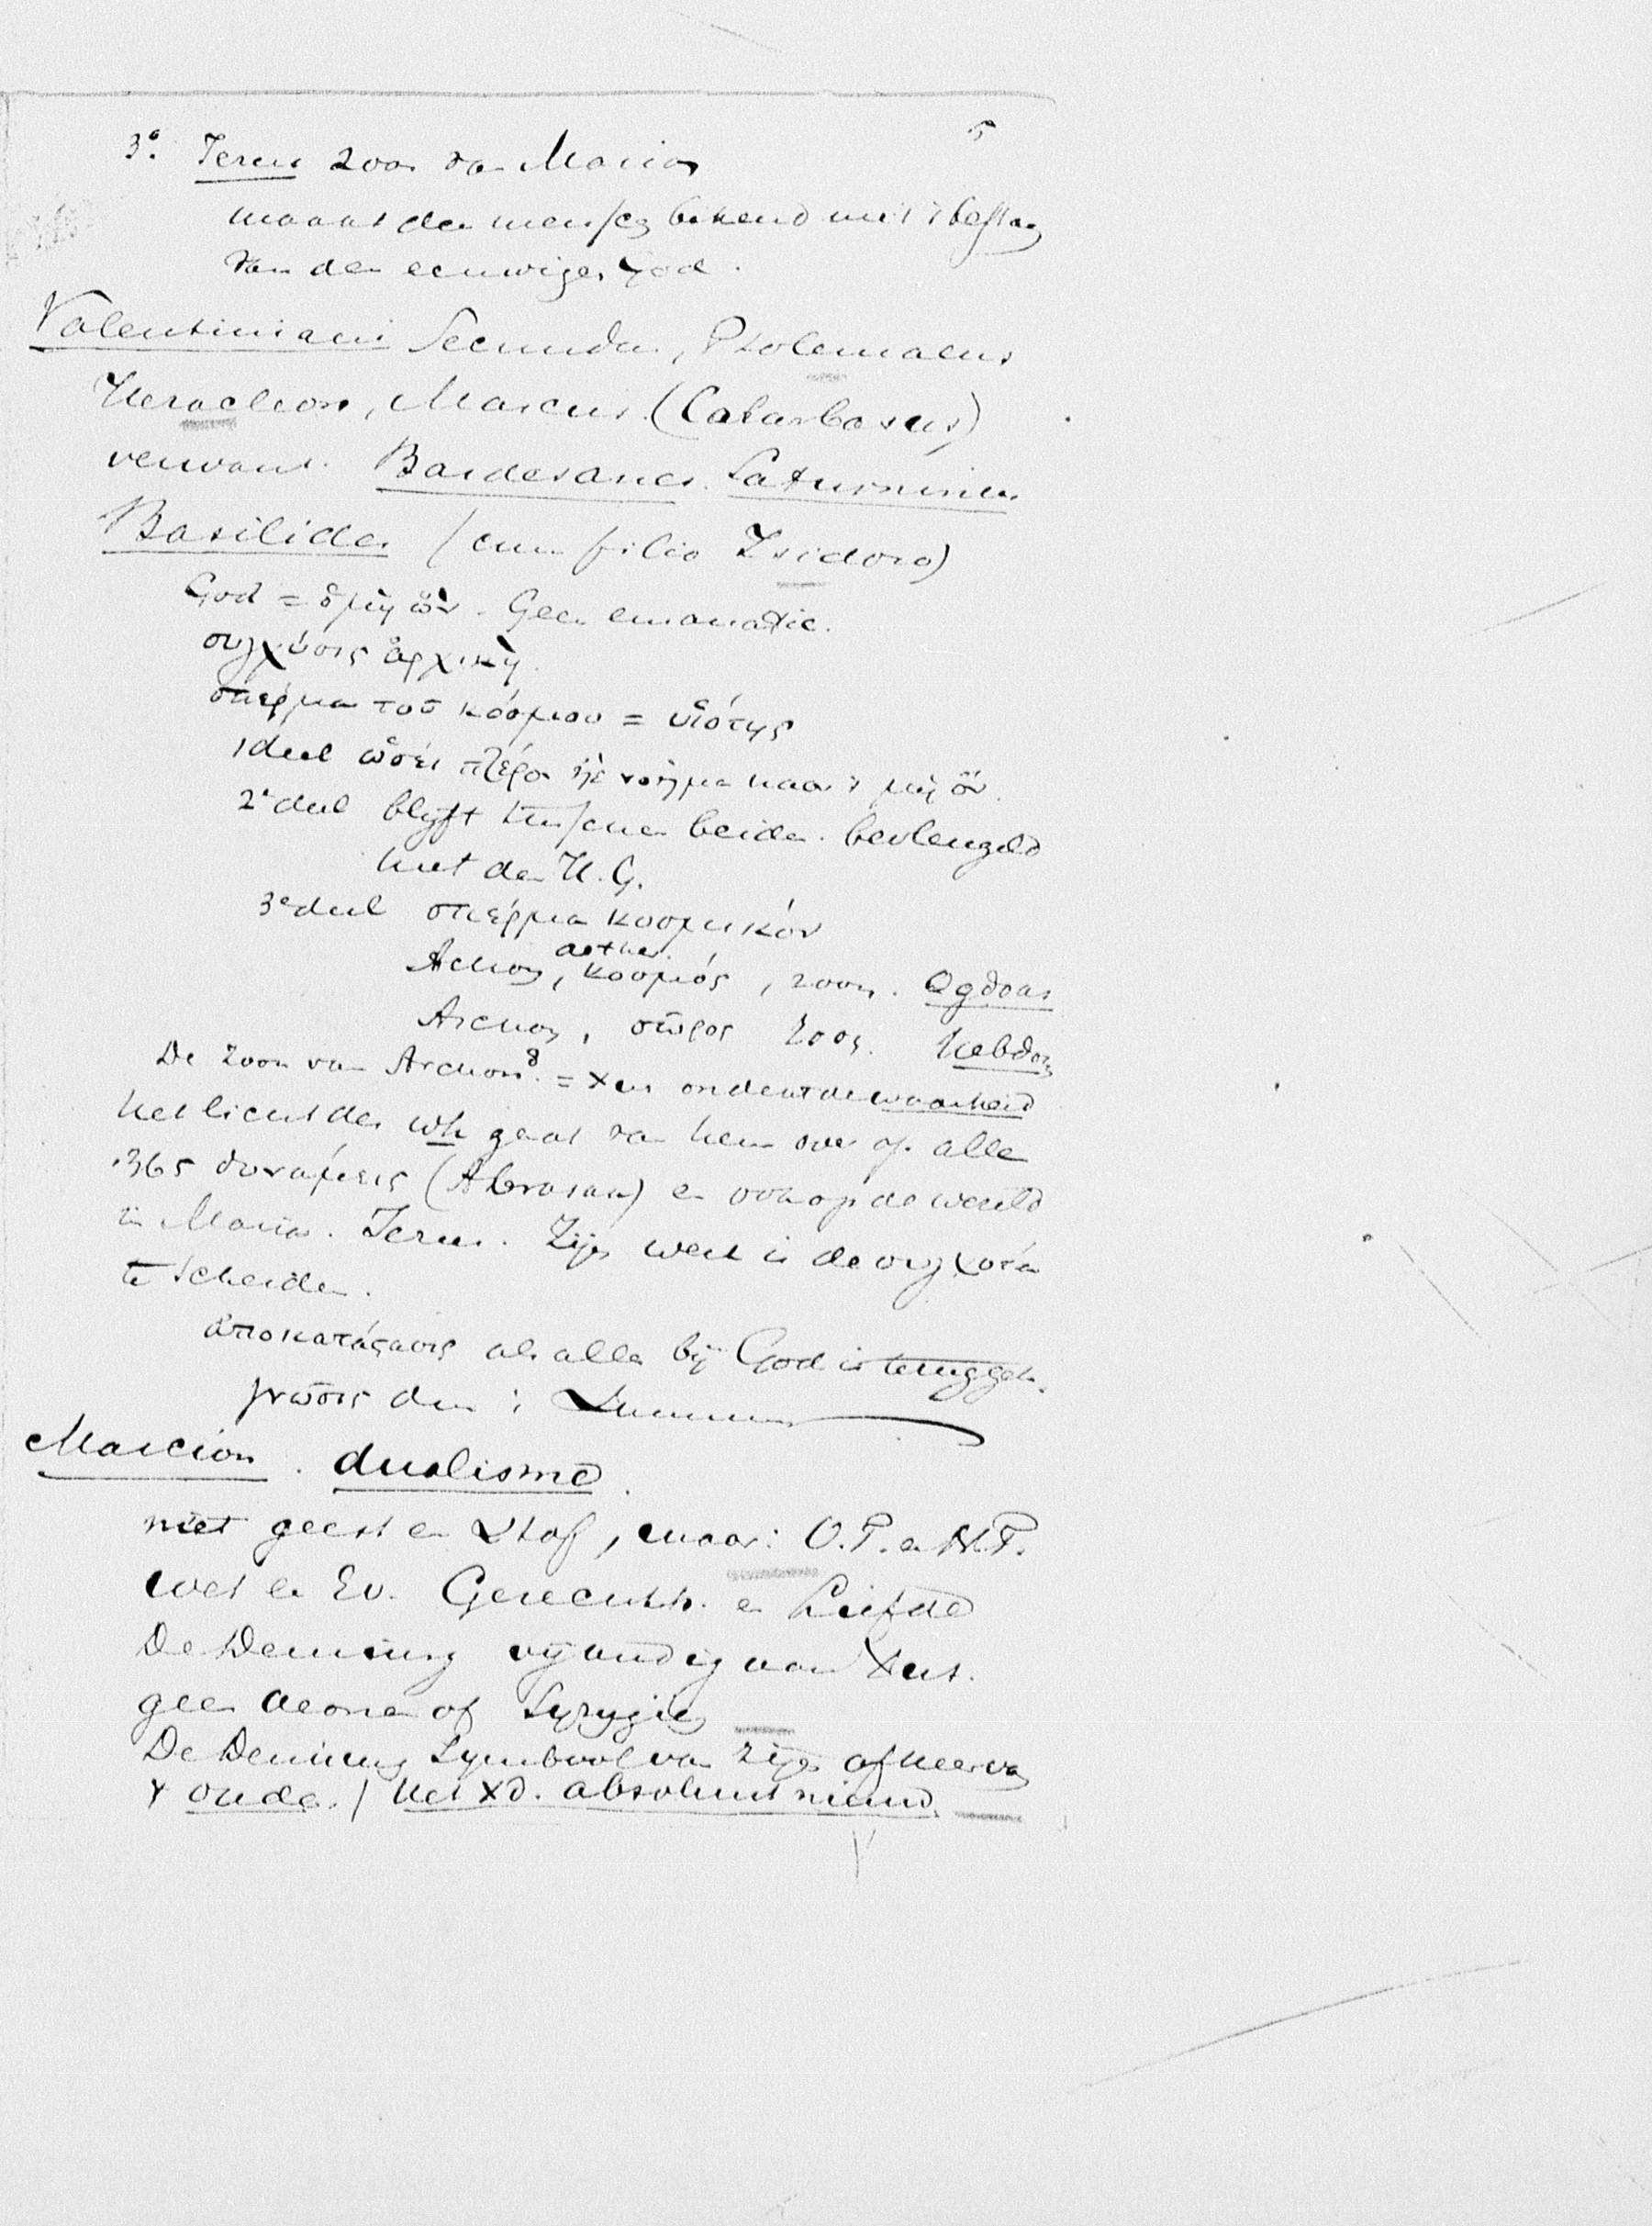 5
3º. Jezus zoon van Maria
maakt de menschen bekend met 't bestaan
van den eeuwigen God.
Valentiniani Secundus, Ptolemaeus
Heracleon, Marcus (Colarbasus)
verwant. Bardesanes. Saturninus
Basilides (cum filio Isidoro)
God = ὁ μὴ ὤν. Geen emanatie.
συγχύσις ἀρχική.
σπέρμα τοῦ κόσμου = υἱότης
1 deel ὡσεὶ πτέρον ἠὲ νόημα naar 't μὴ ὄν.
2e deel blijft tusschen beiden. bevleugeld
met den H. G.
3e deel σπέρμα κοσμικόν
aether.
Archon, κοσμός, zoon. Ogdoas
Archon, zoon. Hebdom
De zoon van Archon 8. = Xus ondekt de waarheid
het licht der wh gaat van hem over op alle
365 δυνάμεις (Abraxas) en ook op de wereld
in Maria. Jezus. Zijn werk is de συγχυσις
te scheiden.
ἀποκατάστασις als alles bij God is teruggek.
γνῶσις den
Marcion. dualisme.
niet geest en stof, maar: O.T. en N.T.
Wet en Ev. Gerechth. en Liefde
De Demiurg vijandig aan Xus.
geen aeonen of Syzygien
De Demiurg Symbool van zijn afkeer van
't oude. / het Xd. absoluut nieuw.